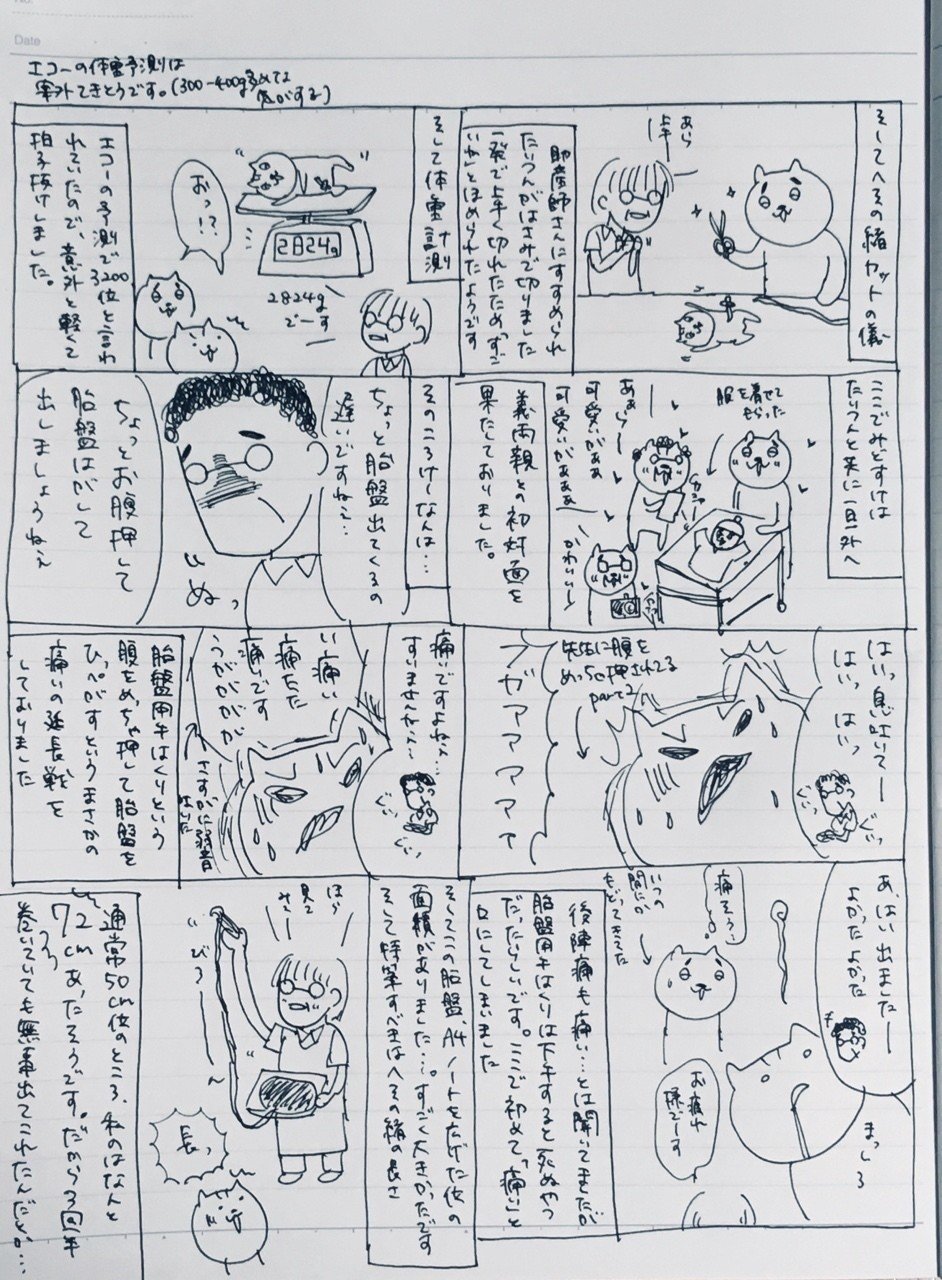 Date
エコーの体重予測は
案外てきとうです。(300-400g多めてな
気がする)
そしてへその緒カットの儀
あら
上手
助産師さんにすすめられ
たいつんがはさみで切りました
一発で上手く切れたため「すご
いわ」とほめられたようです
そして体重計測
2824g
おっ!?
2824g
でーす
エコーの予測で3200位と言わ
れていたので、意外と軽くて
拍子抜けしました。
ここでみどすけは
たいつんと共に一旦外へ
服を着せて
もらった
あぁら〜
可愛いがぁぁ
可愛いがぁぁぁ
かわいい〜
義両親との初対面を
果たしておりました。
そのころけーなんは…
ちょっと胎盤出てくるの
遅いですねぇ…
ぬっ
ちょっとお腹押して
胎盤はがして
出しましょうねぇ
はいっ息吐いてー
はいっ はいっ
ぐいっ
先生に腹を
めっちゃ押されてる
part2
アガァァァァァ
痛いですよねぇ…
すいませんねぇ…
ぐいっ
ぐいっ
い、痛い
痛ちた
痛いです
うががががが
さすがに弱音
吐いた
胎盤用手はくりという
腹をめっちゃ押して胎盤を
ひっぺがすというまさかの
痛いの延長戦を
しておりました
あ、はい出ましたー
よかったよかった
まっしろ
痛そう…
いつの
間にか
もどってきてた
お疲れ
様でーす
後陣痛も痛い…とは聞いてましたが
胎盤用手はくりは下手すると死ぬやつ
だったらしいです。ここで初めて「痛い」と
口にしてしまいました
そしてこの胎盤、A4ノートを広げた位の
面積がありました…。すごく大きかったです
そして特筆すべきはへその緒の長さ
ほら
見て
み〜
びろ〜
長っ
通常50cm位のところ、私のはなんと
72cmあったそうです。だから3回半
巻いていても無事出てこれたんだとか…